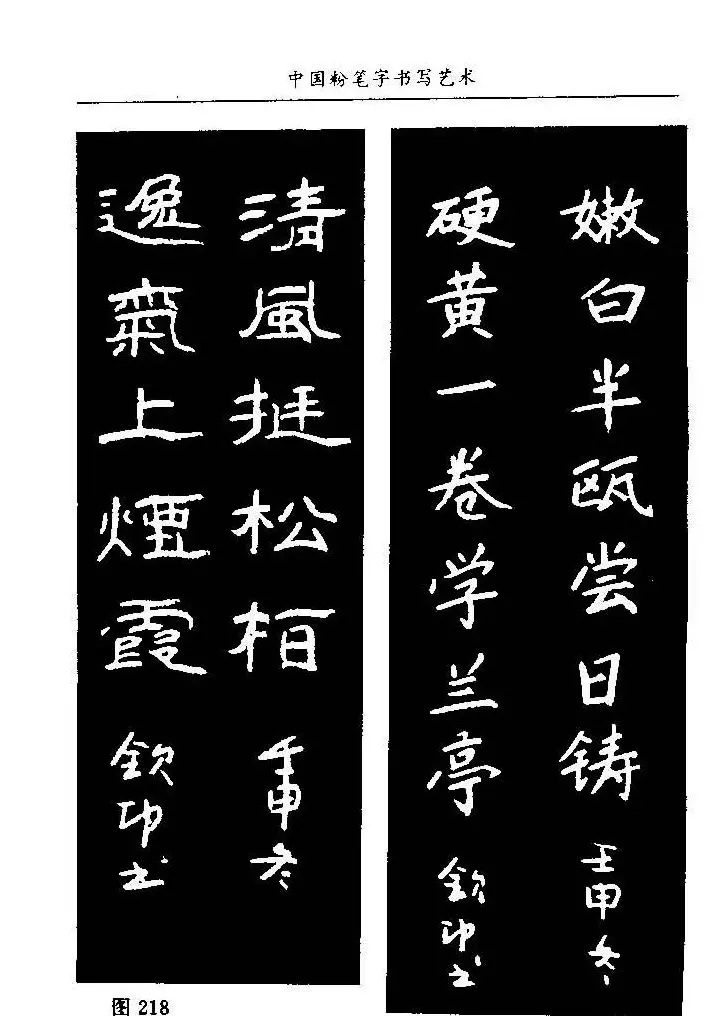 中国粉笔字书写艺术
嫩白半瓯尝日铸
壬申冬
硬黄一卷学兰亭
钦功书
清風挺松柏
壬申冬
逸氣上煙霞
钦功书
图 218